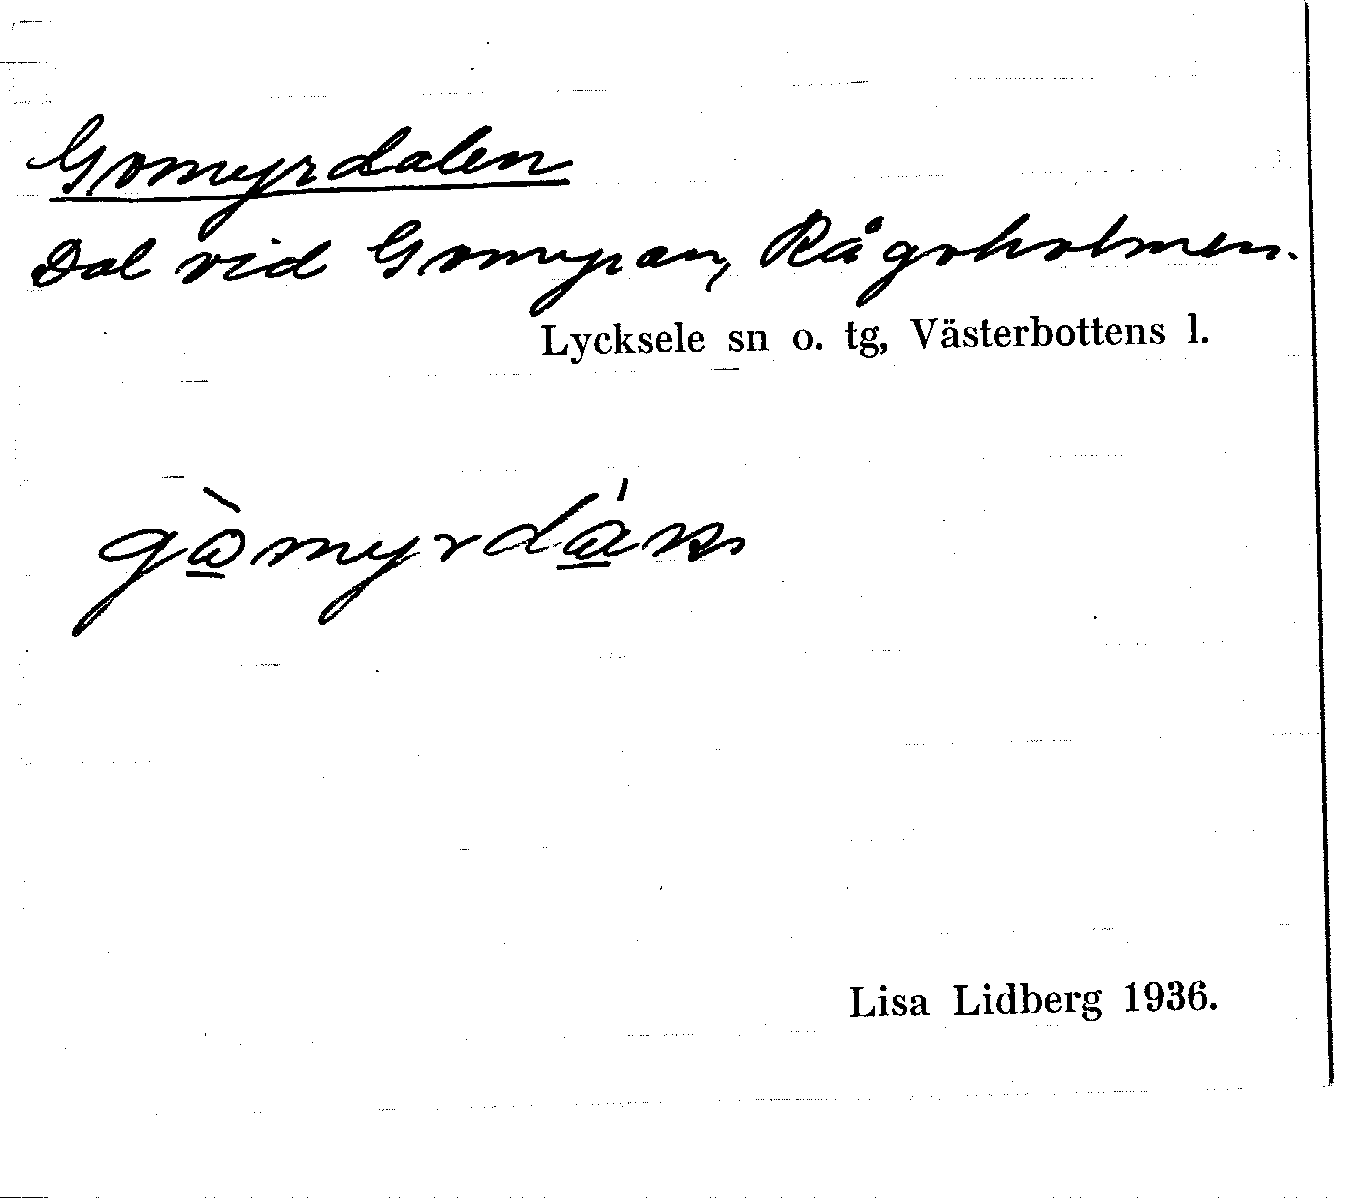 Gomyrdalen
Dal vid Gomyran, Rågoholmen.
Lycksele sn o. tg, Västerbottens l.
Lisa Lidberg 1936.